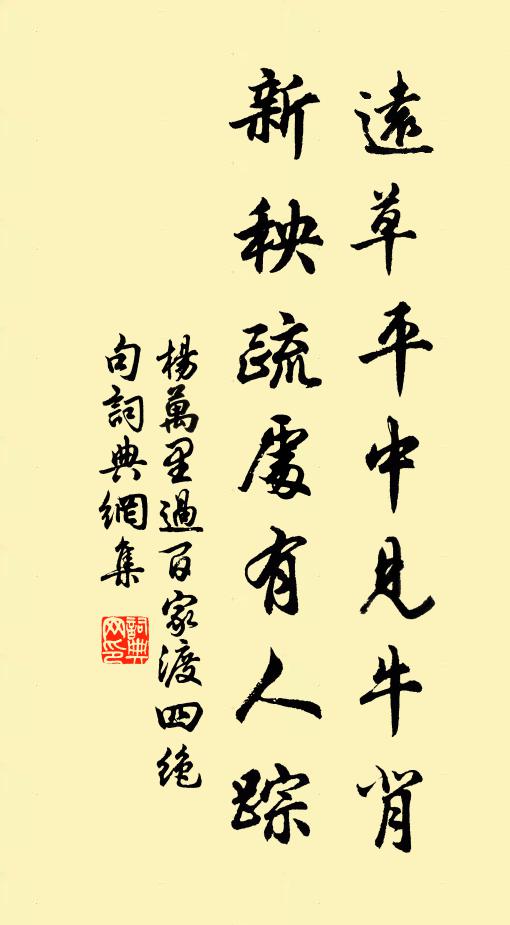 遠草平中見牛背
新秧疏處有人踪
楊萬里過百家渡四絶
句詞典網集
詞典
网印